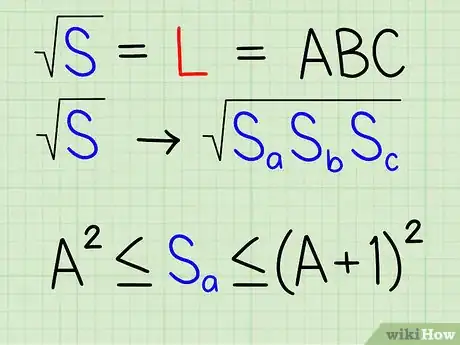 √S = L = ABC
√S → √SaSbSc
A² ≤ Sa ≤ (A+1)²
wikiHow